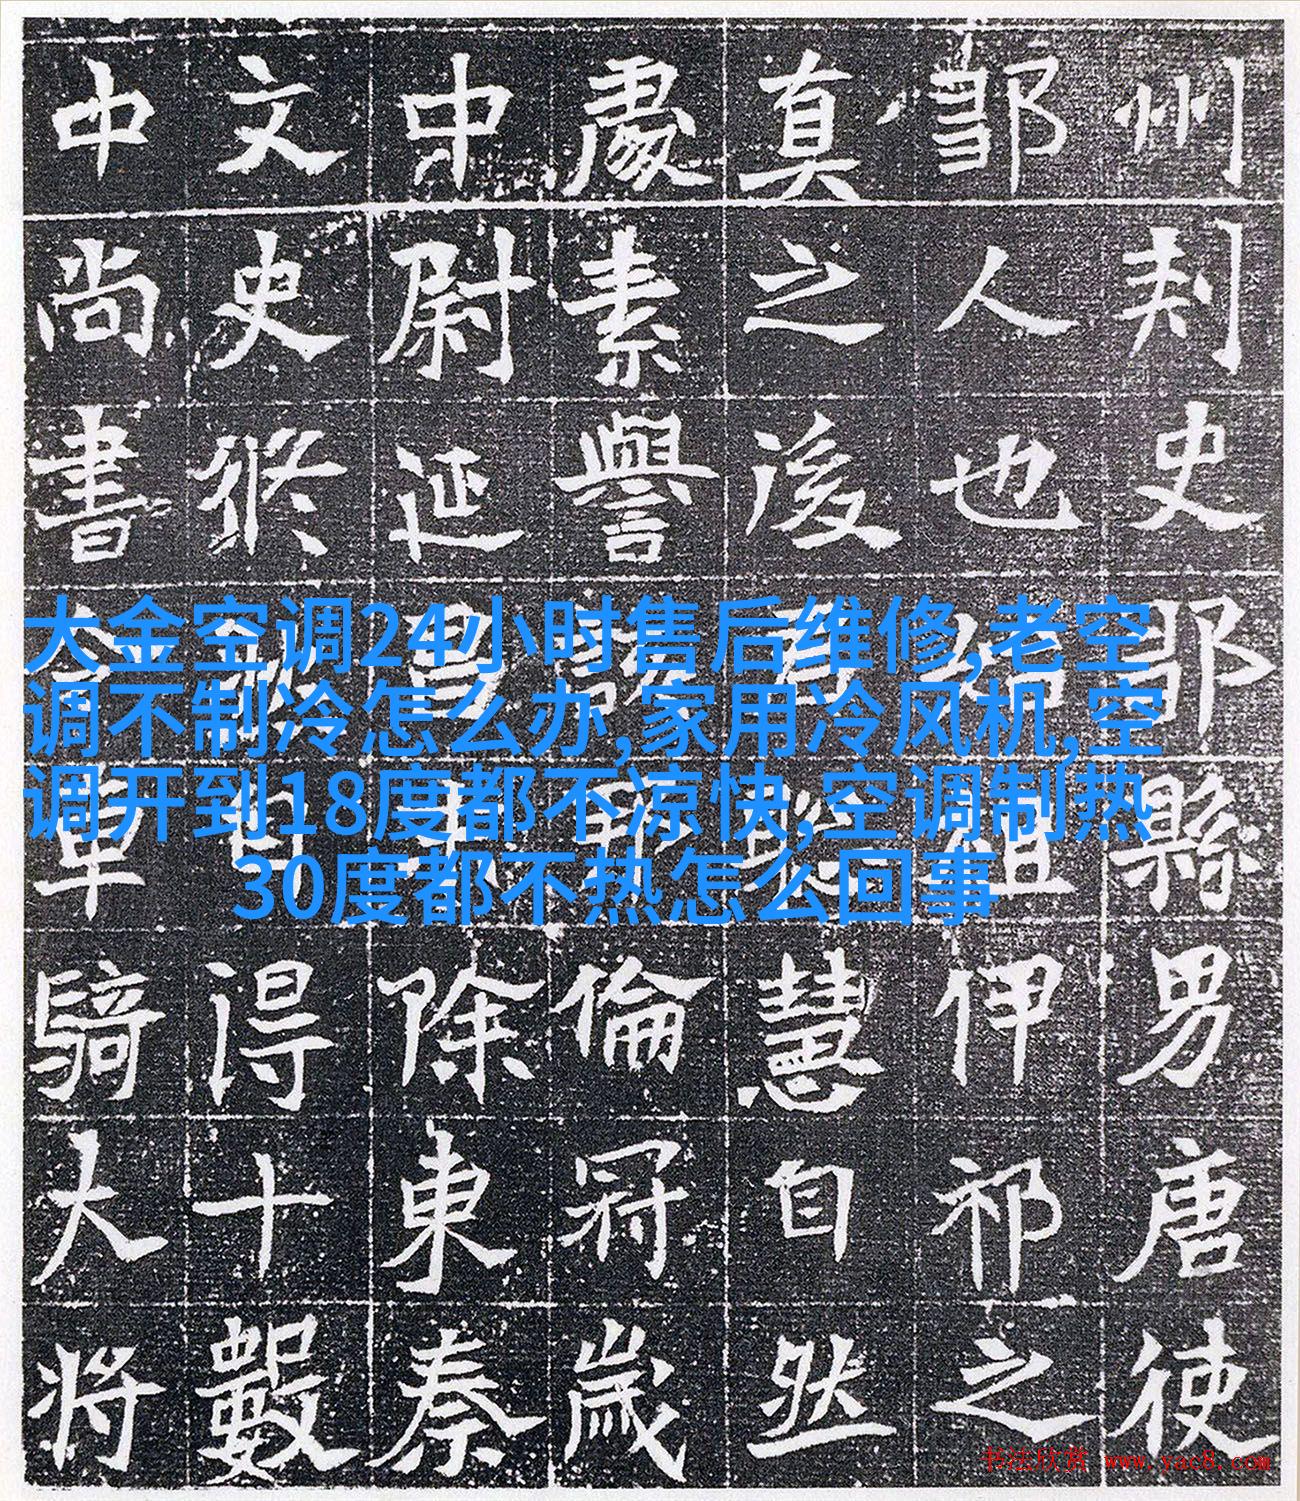 州刾史鄒縣男唐使
鄒人也伊祁之
真之後慧自然
處素譽倫冠歲
中尉延昌除東秦
文史修得十數
中尚書車騎大將
大金空调24小时售后维修,老空
调不制冷怎么办,家用冷风机,空
调开到18度都不凉快,空调制热
30度都不热怎么回事
书法欣赏 www.yac8.com